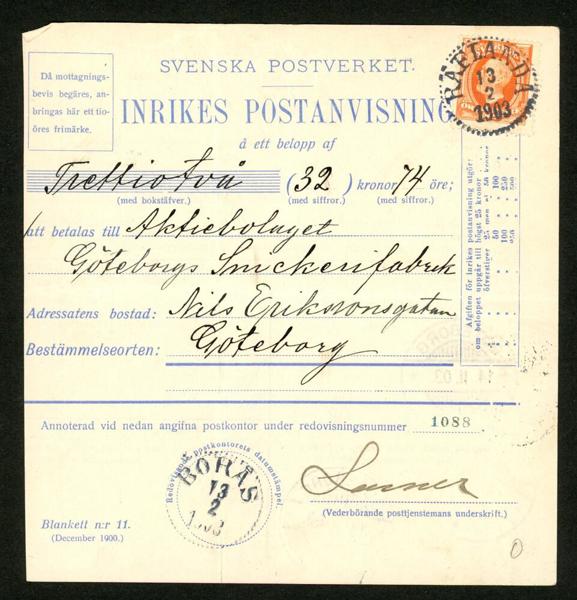 Då mottagnings-
bevis begäres, an-
bringas här ett tio-
öres frimärke.
SVENSKA POSTVERKET.
INRIKES POSTANVISNING
å ett belopp af
Trettiotvå (32) kronor 74 öre;
(med bokstäfver.) (med siffror.) (med siffror.)
att betalas till Aktiebolaget
Göteborgs Snickerifabrik
Adressatens bostad: Nils Eriksonsgatan
Bestämmelseorten: Göteborg
RÄFLANDA
13
2
1903
Afgiften för Inrikes postanvisning utgör:
om beloppet uppgår till högst 25 kronor
öfverstiger 25 men ej 50 kronor
50 100
100 250
250 500
Annoterad vid nedan angifna postkontor under redovisningsnummer 1088
Redovisande postkontorets datumstämpel.
BORÅS
13
2
1903
(Vederbörande posttjenstemans underskrift.)
Blankett n:r 11.
(December 1900.)